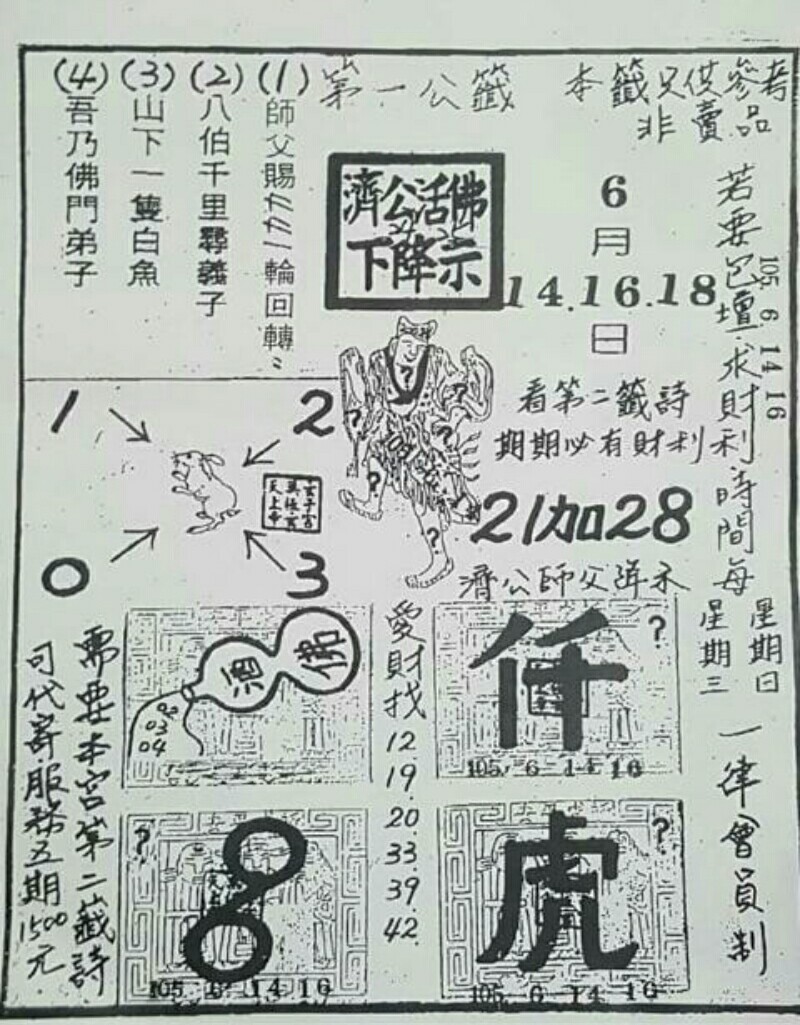 本籤只供參考
非賣品
第一公籤
(1)師父賜七七一輪回轉〃
(2)八伯千里尋義子
(3)山下一隻白魚
(4)吾乃佛門弟子
濟公活佛
下降示
6
月
14.16.18
日
若要包壇求財利時間每
星期日
星期三
一律會員制
105 6 14 16
看第二籤詩
期期必有財利
21加28
濟公師父降示
1
2
0
3
?
?
?
?
?
?
愛財找
12
19
20
33
39
42
酒佛
02
03
04
仟
?
105. 6 14 16
?
8
105. 6 14 16
虎
?
105. 6 14 16
需要本宮第二籤詩
可代寄服務五期1500元